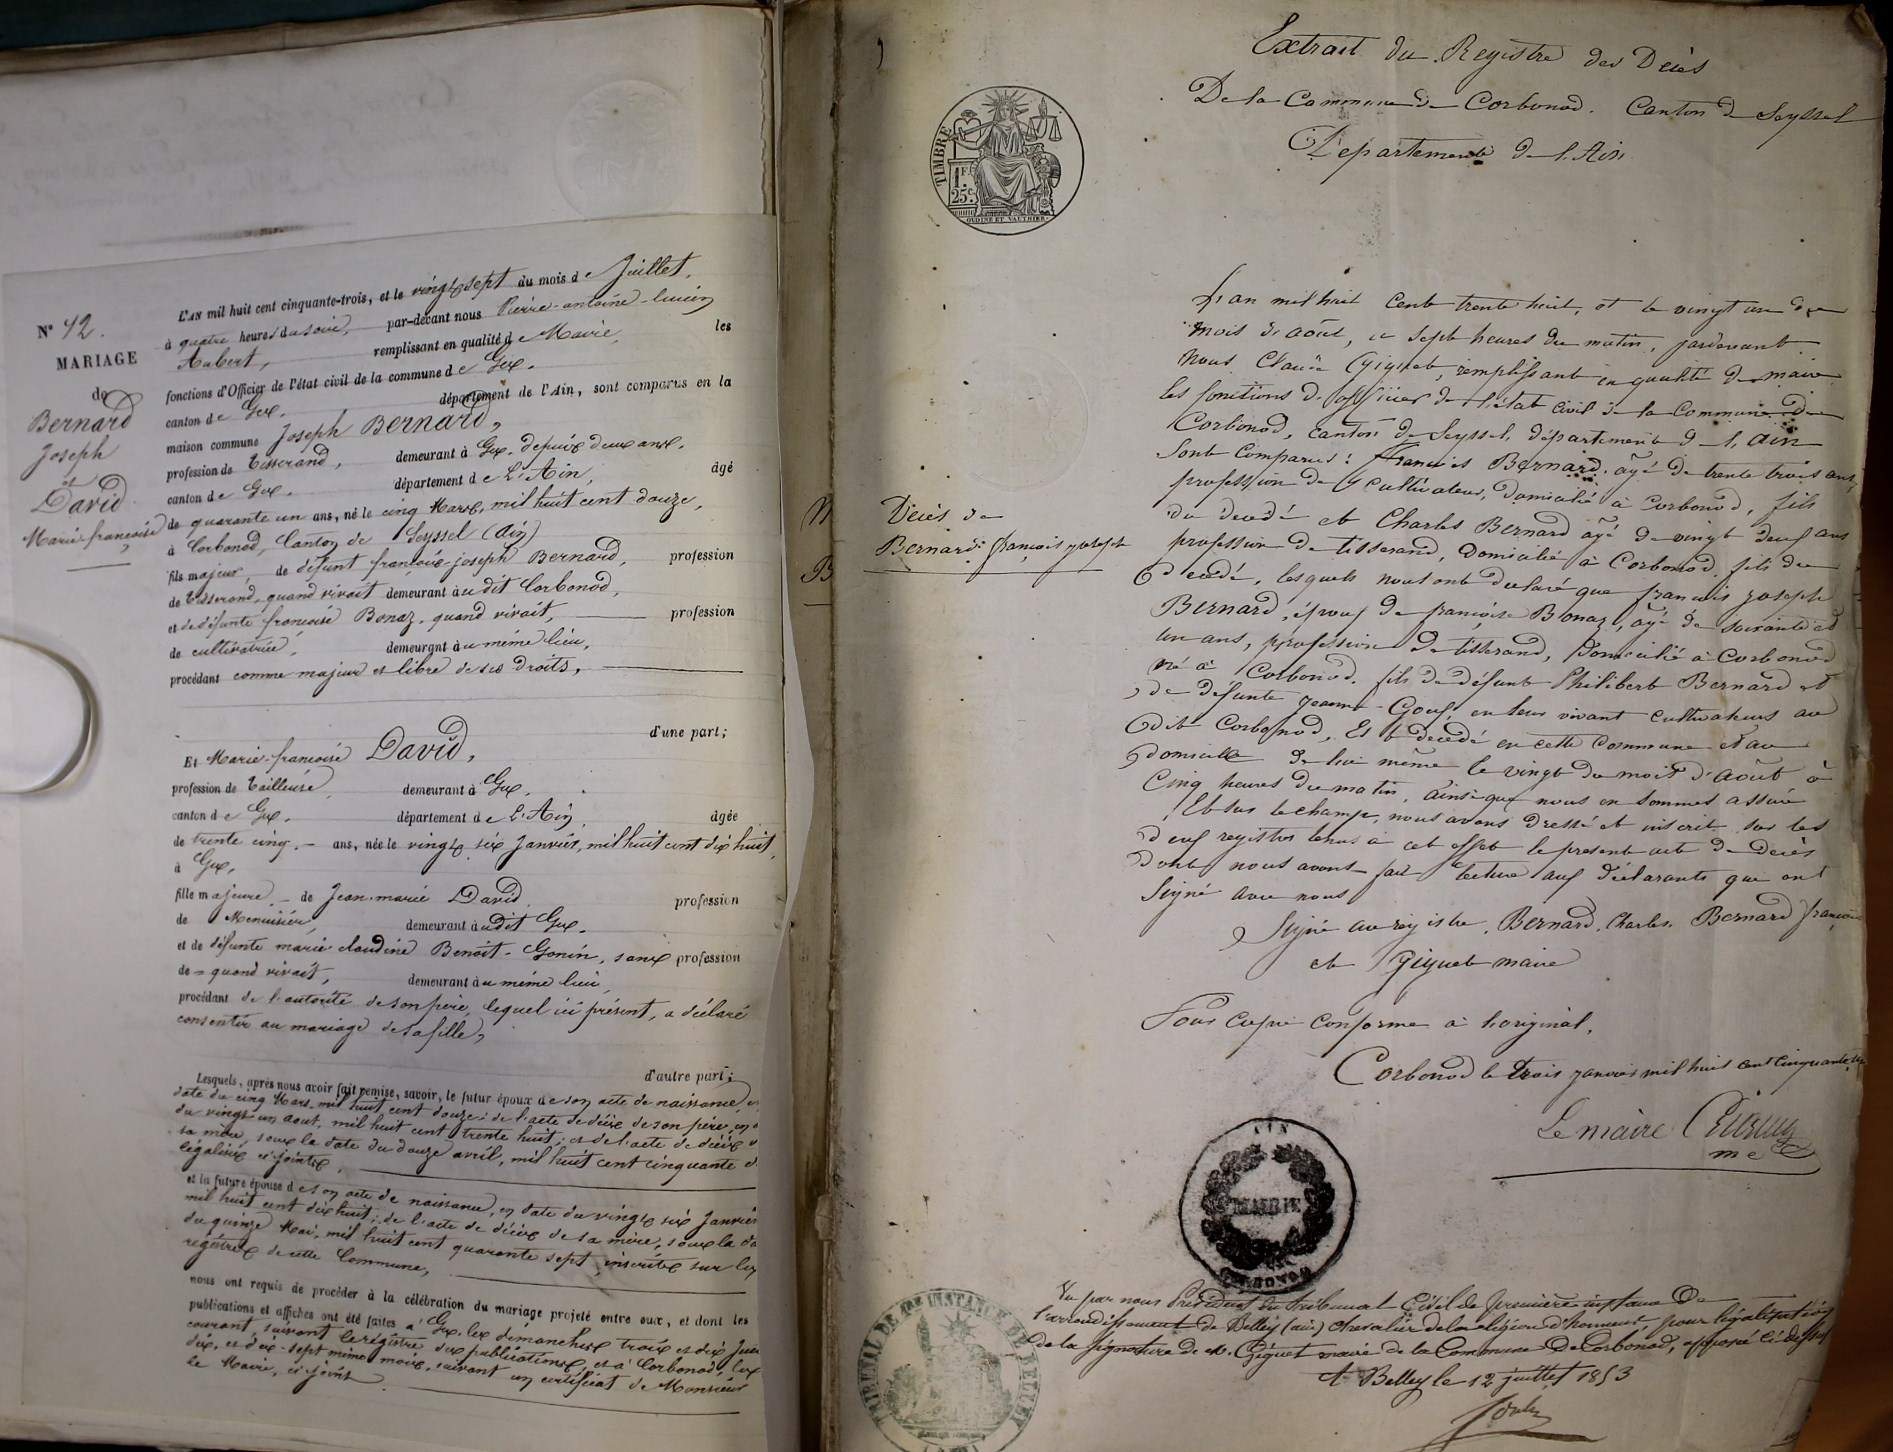 N° 42.
MARIAGE
de
Bernard
Joseph
et
David
Marie-francoise
L'AN mil huit cent cinquante-trois, et le vingt-sept du mois de Juillet,
à quatre heures du soir, par-devant nous Pierre-antoine-lucien
Aubert, remplissant en qualité de Maire, les
fonctions d'Officier de l'état civil de la commune de Gex.
canton de Gex. département de l'Ain, sont comparus en la
maison commune Joseph Bernard,
profession de Tisserand, demeurant à Gex, depuis deux ans.
canton de Gex. département de L'Ain, âgé
de quarante un ans, né le cinq Mars, mil huit cent douze,
à Corbonod, Canton de Seyssel (Ain)
fils majeur, de défunt françois-joseph Bernard, profession
de Tisserand, quand vivait demeurant audit Corbonod,
et de défunte françoise Bonaz, quand vivait, profession
de cultivatrice, demeurant au même lieu,
procédant comme majeur et libre de ses droits,
d'une part;
Et Marie-francoise David,
profession de Tailleuse, demeurant à Gex,
canton de Gex. département de L'Ain, âgée
de trente cinq. ans, née le vingt-six Janvier, mil huit cent dix huit,
à Gex,
fille majeure de Jean-marie David profession
de Menuisier, demeurant audit Gex.
et de défunte marie claudine Benoit-Gonin, sans profession
de quand vivait, demeurant au même lieu,
procédant de l'autorité de son père, lequel ici présent, a déclaré
consentir au mariage de sa fille,
d'autre part;
Lesquels, après nous avoir fait remise, savoir, le futur époux de son acte de naissance, en
date du cinq Mars, mil huit cent douze; de l'acte de décès de son père, en
du vingt-un aout, mil huit cent trente huit; et de l'acte de décès
sa mère, sous la date du douze avril, mil huit cent cinquante
légalisés et joints,
et la future épouse de son acte de naissance, en date du vingt-six Janvier
mil huit cent dix huit; de l'acte de décès de sa mère, sous la da
du quinze Mai, mil huit cent quarante sept, inscrits sur les
registres de cette Commune,
nous ont requis de procéder à la célébration du mariage projeté entre eux, et dont les
publications et affiches ont été faites à Gex, les dimanches trois et dix Jui
courant suivant le registre des publications, et à Corbonod, les
dix, et dix-sept même mois, suivant un certificat de Monsieur
le Maire, ci joint
TIMBRE
1 F.
25 c.
OUDINE ET VAUTHIER
Extrait du Registre des Décès
De la Commune de Corbonod. Canton de Seyssel
Departement de l'Ain
Décès de
Bernard françois joseph
L'an mil huit cent trente huit, et le vingt un du
mois d'août, à sept heures du matin, pardevant
nous Claude Gignet, remplissant en qualité de maire
les fonctions d'officier de l'état civil de la Commune de
Corbonod, canton de Seyssel, département de l'ain
Sont Comparus: François Bernard, âgé de trente trois ans,
profession de Cultivateur, Domicilié à Corbonod, fils
du decedé et Charles Bernard âgé de vingt deux ans
profession de tisserand, Domicilié à Corbonod, fils du
decedé, lesquels nous ont declaré que francois joseph
Bernard, époux de françoise Bonaz, âgé de soixante et
un ans, profession de tisserand, Domicilié à Corbonod
né à Corbonod, fils de défunt Philibert Bernard et
de défunte jeanne Goux, en leur vivant cultivateurs au
dit Corbonod, Est decedé en cette Commune et au
domicile de lui même le vingt du mois d'août à
Cinq heures du matin, ainsi que nous en sommes assuré
Et sur le champ, nous avons dressé et inscrit sur les
deux registres tenus à cet effet le present acte de decès
dont nous avons fait lecture aux déclarants que ont
signé avec nous
Signé au registre, Bernard, Charles, Bernard françois
et Gignet maire
Pour Copie Conforme à l'original,
Corbonod le trois janvier mil huit cent Cinquante
Le maire
me
AIN
MAIRIE
CORBONOD
Vu par nous Président du tribunal Civil de première instance de
l'arrondissement de Belley (ain) chevalier de la légion d'honneur, pour légalisation
de la signature de M. Gignet maire de la Commune De Corbonod, apposée ci-dessus
A Belley le 12 juillet 1853
TRIBUNAL DE 1RE INSTANCE DE BELLEY